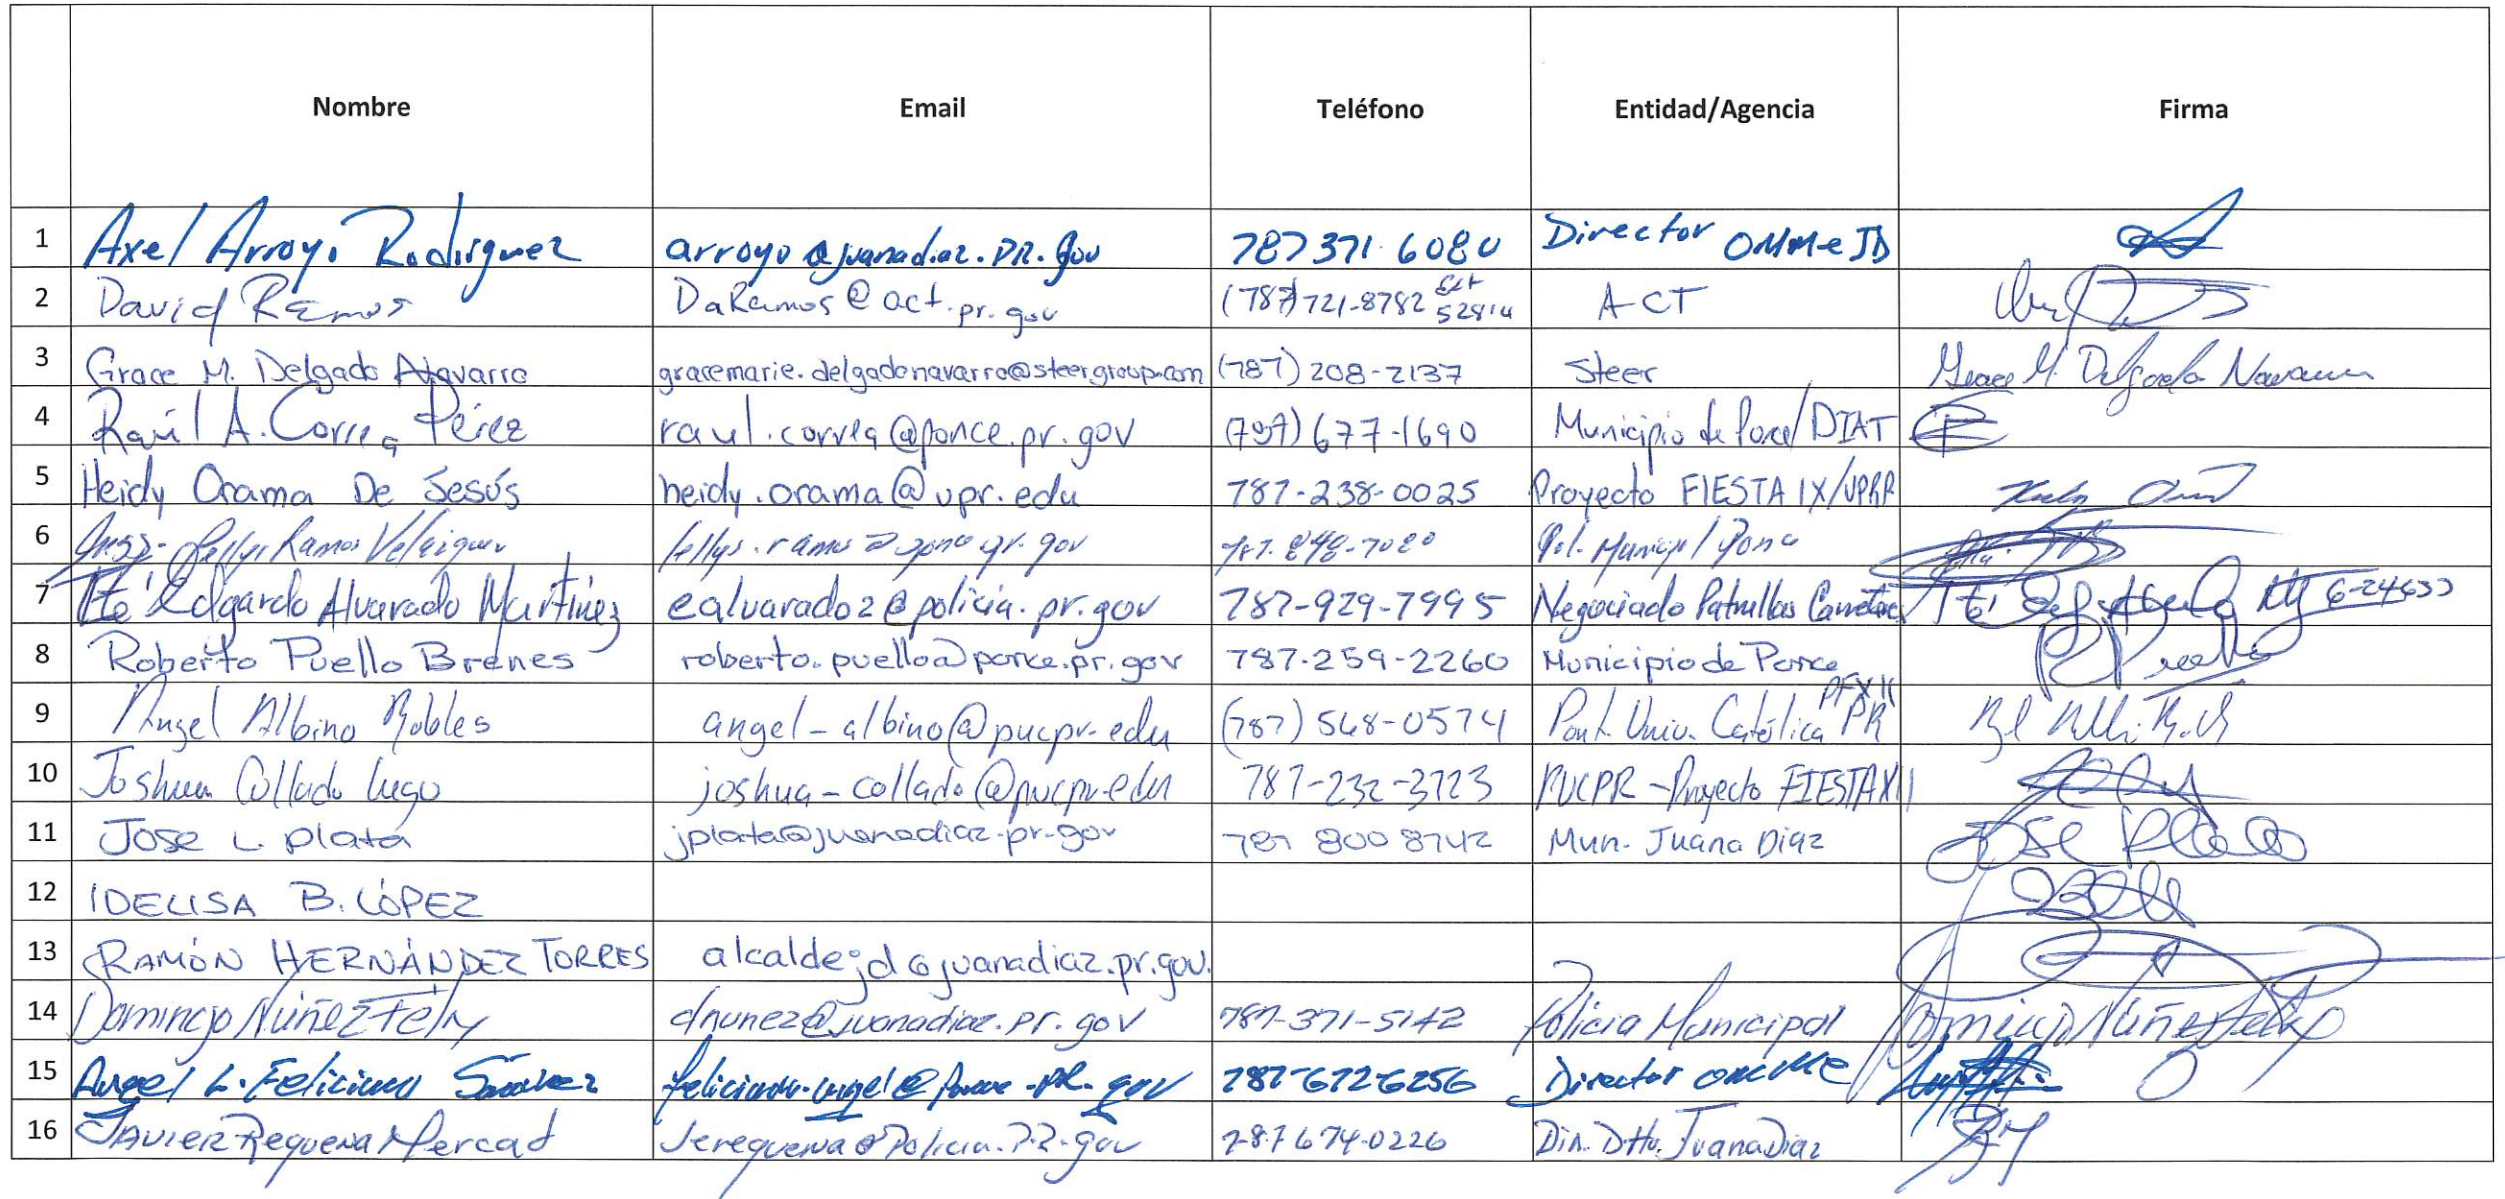 Nombre Email Teléfono Entidad/Agencia Firma
1 Axel Arroyo Rodriguez arroyo@juanadiaz.pr.gov 787 371 6080 Director OMMe JD
2 David Ramos DaRamos@act.pr.gov (787) 721-8782 ext 52814 ACT
3 Grace M. Delgado Navarro gracemarie.delgadonavarro@steergroup.com (787) 208-2137 Steer Grace M. Delgado Navarro
4 Raúl A. Correa Pérez raul.correa@ponce.pr.gov (787) 677-1690 Municipio de Ponce/DIAT
5 Heidy Orama De Jesús heidy.orama@upr.edu 787-238-0025 Proyecto FIESTA IX/UPRR
6 Ramos Pol. Municipal Ponce
7 Tte. Edgardo Alvarado Martínez ealvarado2@policia.pr.gov 787-929-7995 Negociado Patrullas Carreteras 6-24633
8 Roberto Puello Brenes roberto.puello@ponce.pr.gov 787-259-2260 Municipio de Ponce
9 Angel Albino Robles angel-albino@pucpr.edu (787) 568-0574 Pont. Univ. Católica PR PFX II
10 Joshua Collado Lugo joshua-collado@pucpr.edu 787-232-3723 PUCPR - Proyecto FIESTA XII
11 Jose L. Plata jplata@juanadiaz.pr.gov 787 800 8742 Mun. Juana Diaz Jose Plata
12 IDELISA B. LÓPEZ
13 RAMÓN HERNÁNDEZ TORRES alcaldejd@juanadiaz.pr.gov.
14 Domingo Núñez Feliz dnunez@juanadiaz.pr.gov 787-371-5142 Policia Municipal Domingo Núñez Feliz
15 Angel L. Feliciano Sanchez feliciano.angel@ponce.pr.gov 787-672-6256 Director
16 Javier Requena Mercad jerequena@policia.pr.gov 787 674-0226 Dir. Dtto. Juana Diaz